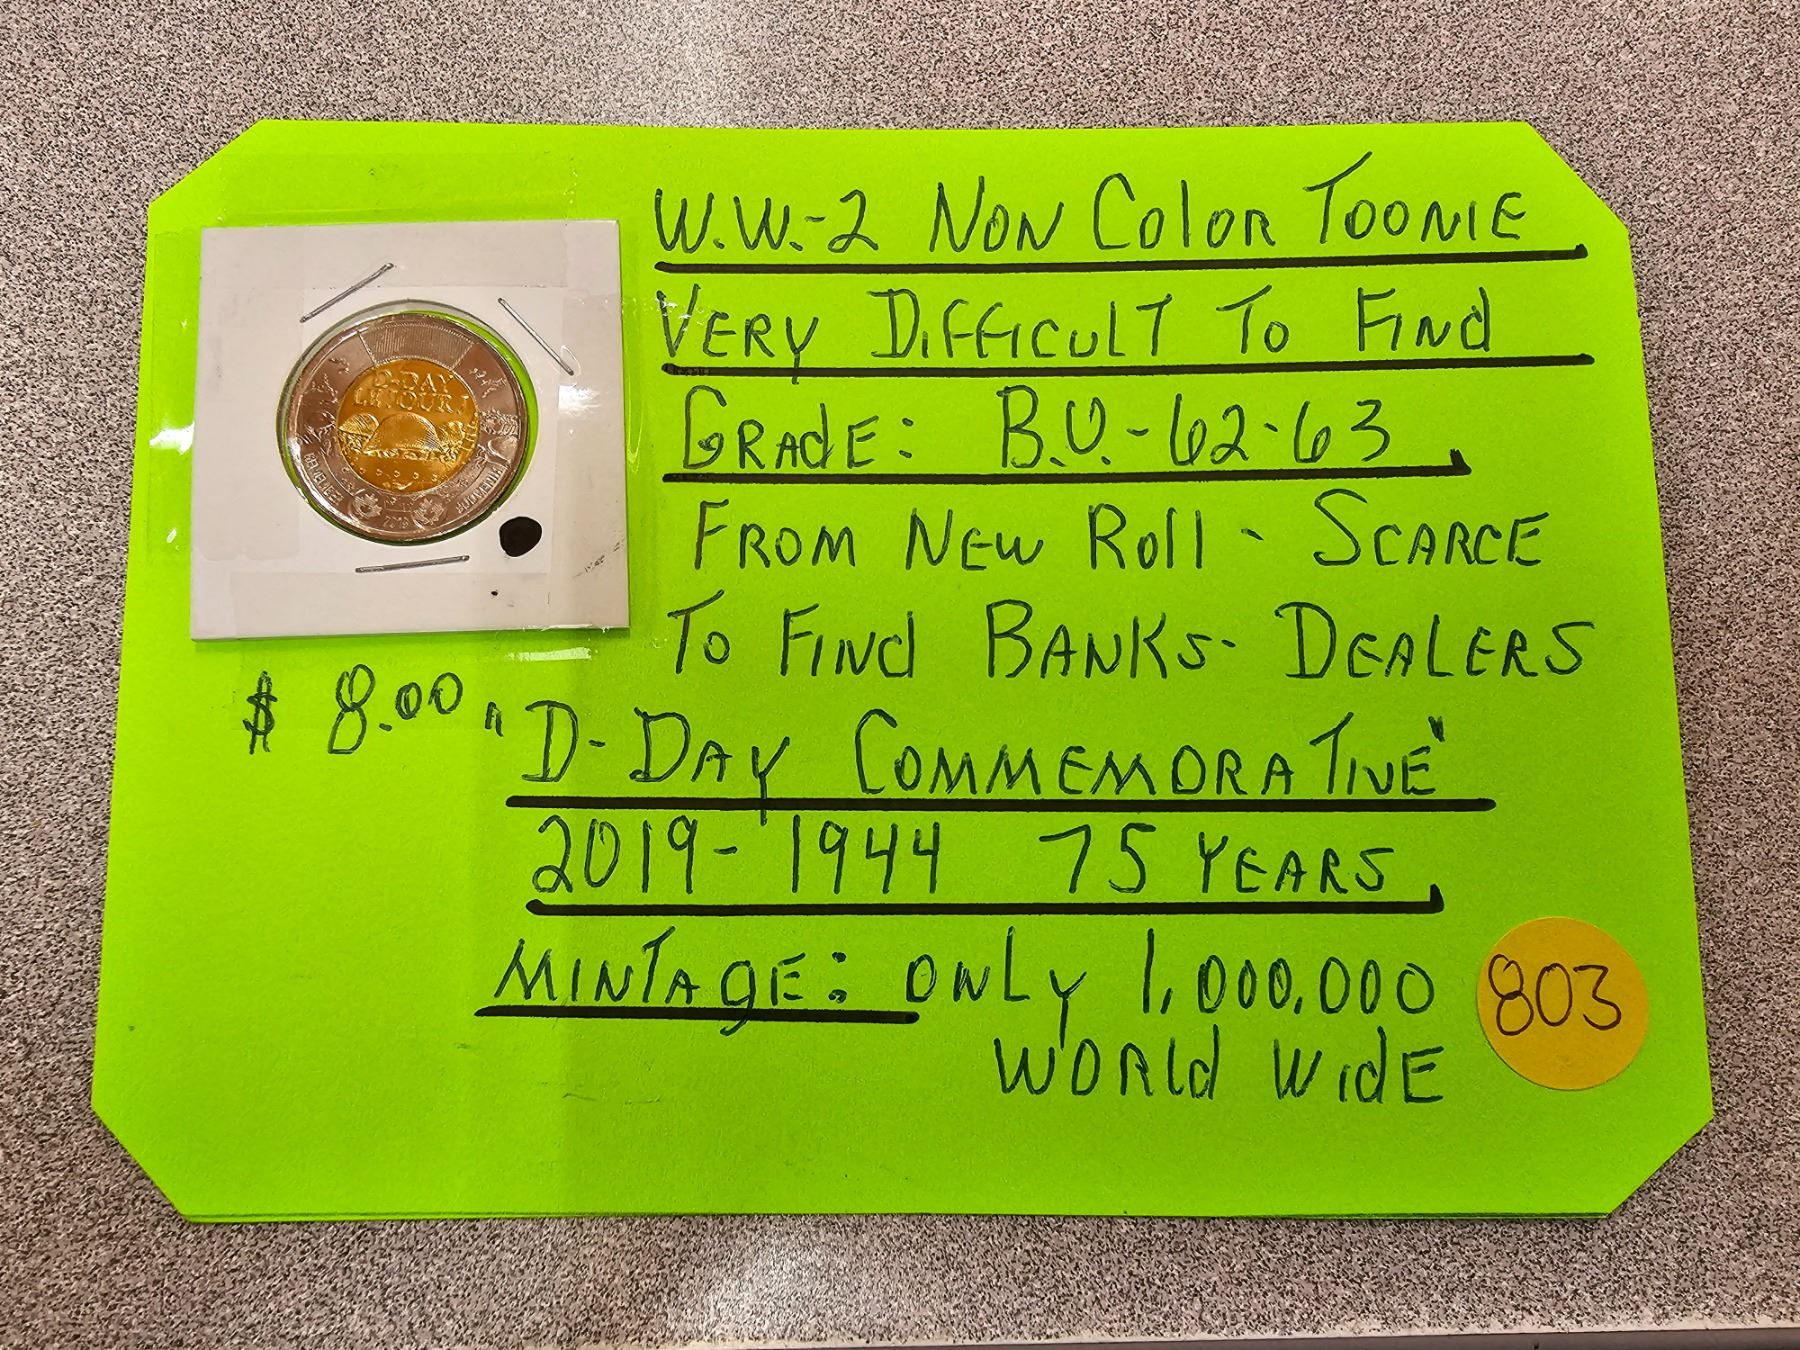 W.W.-2 NON COLOR TOONIE
VERY DIFFICULT TO FIND
GRADE: B.U.-62-63
FROM NEW ROLL - SCARCE
TO FIND BANKS- DEALERS
$ 8.00
"D-DAY COMMEMORATIVE"
2019-1944 75 YEARS
MINTAGE: ONLY 1,000,000
WORLD WIDE
803
D-DAY
LE JOUR J
REMEMBER
2019